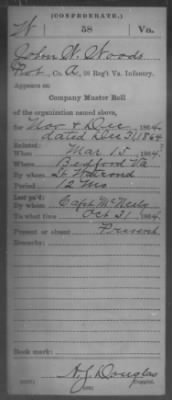 (CONFEDERATE.)
W 58 Va.
John W. Woods
Pvt, Co. A, 58 Reg't Va. Infantry.
Appears on
Company Muster Roll
of the organization named above,
for Nov & Dec, 1864.
dated Dec 31, 1864
Enlisted:
When Mar 15, 1864
Where Bedford Va
By whom Lt
Period 12 Mo
Last paid:
By whom Capt McNeely
To what time Oct 31, 1864.
Present or absent Present
Remarks:
Book mark:
A.J. Douglas
Copyist.